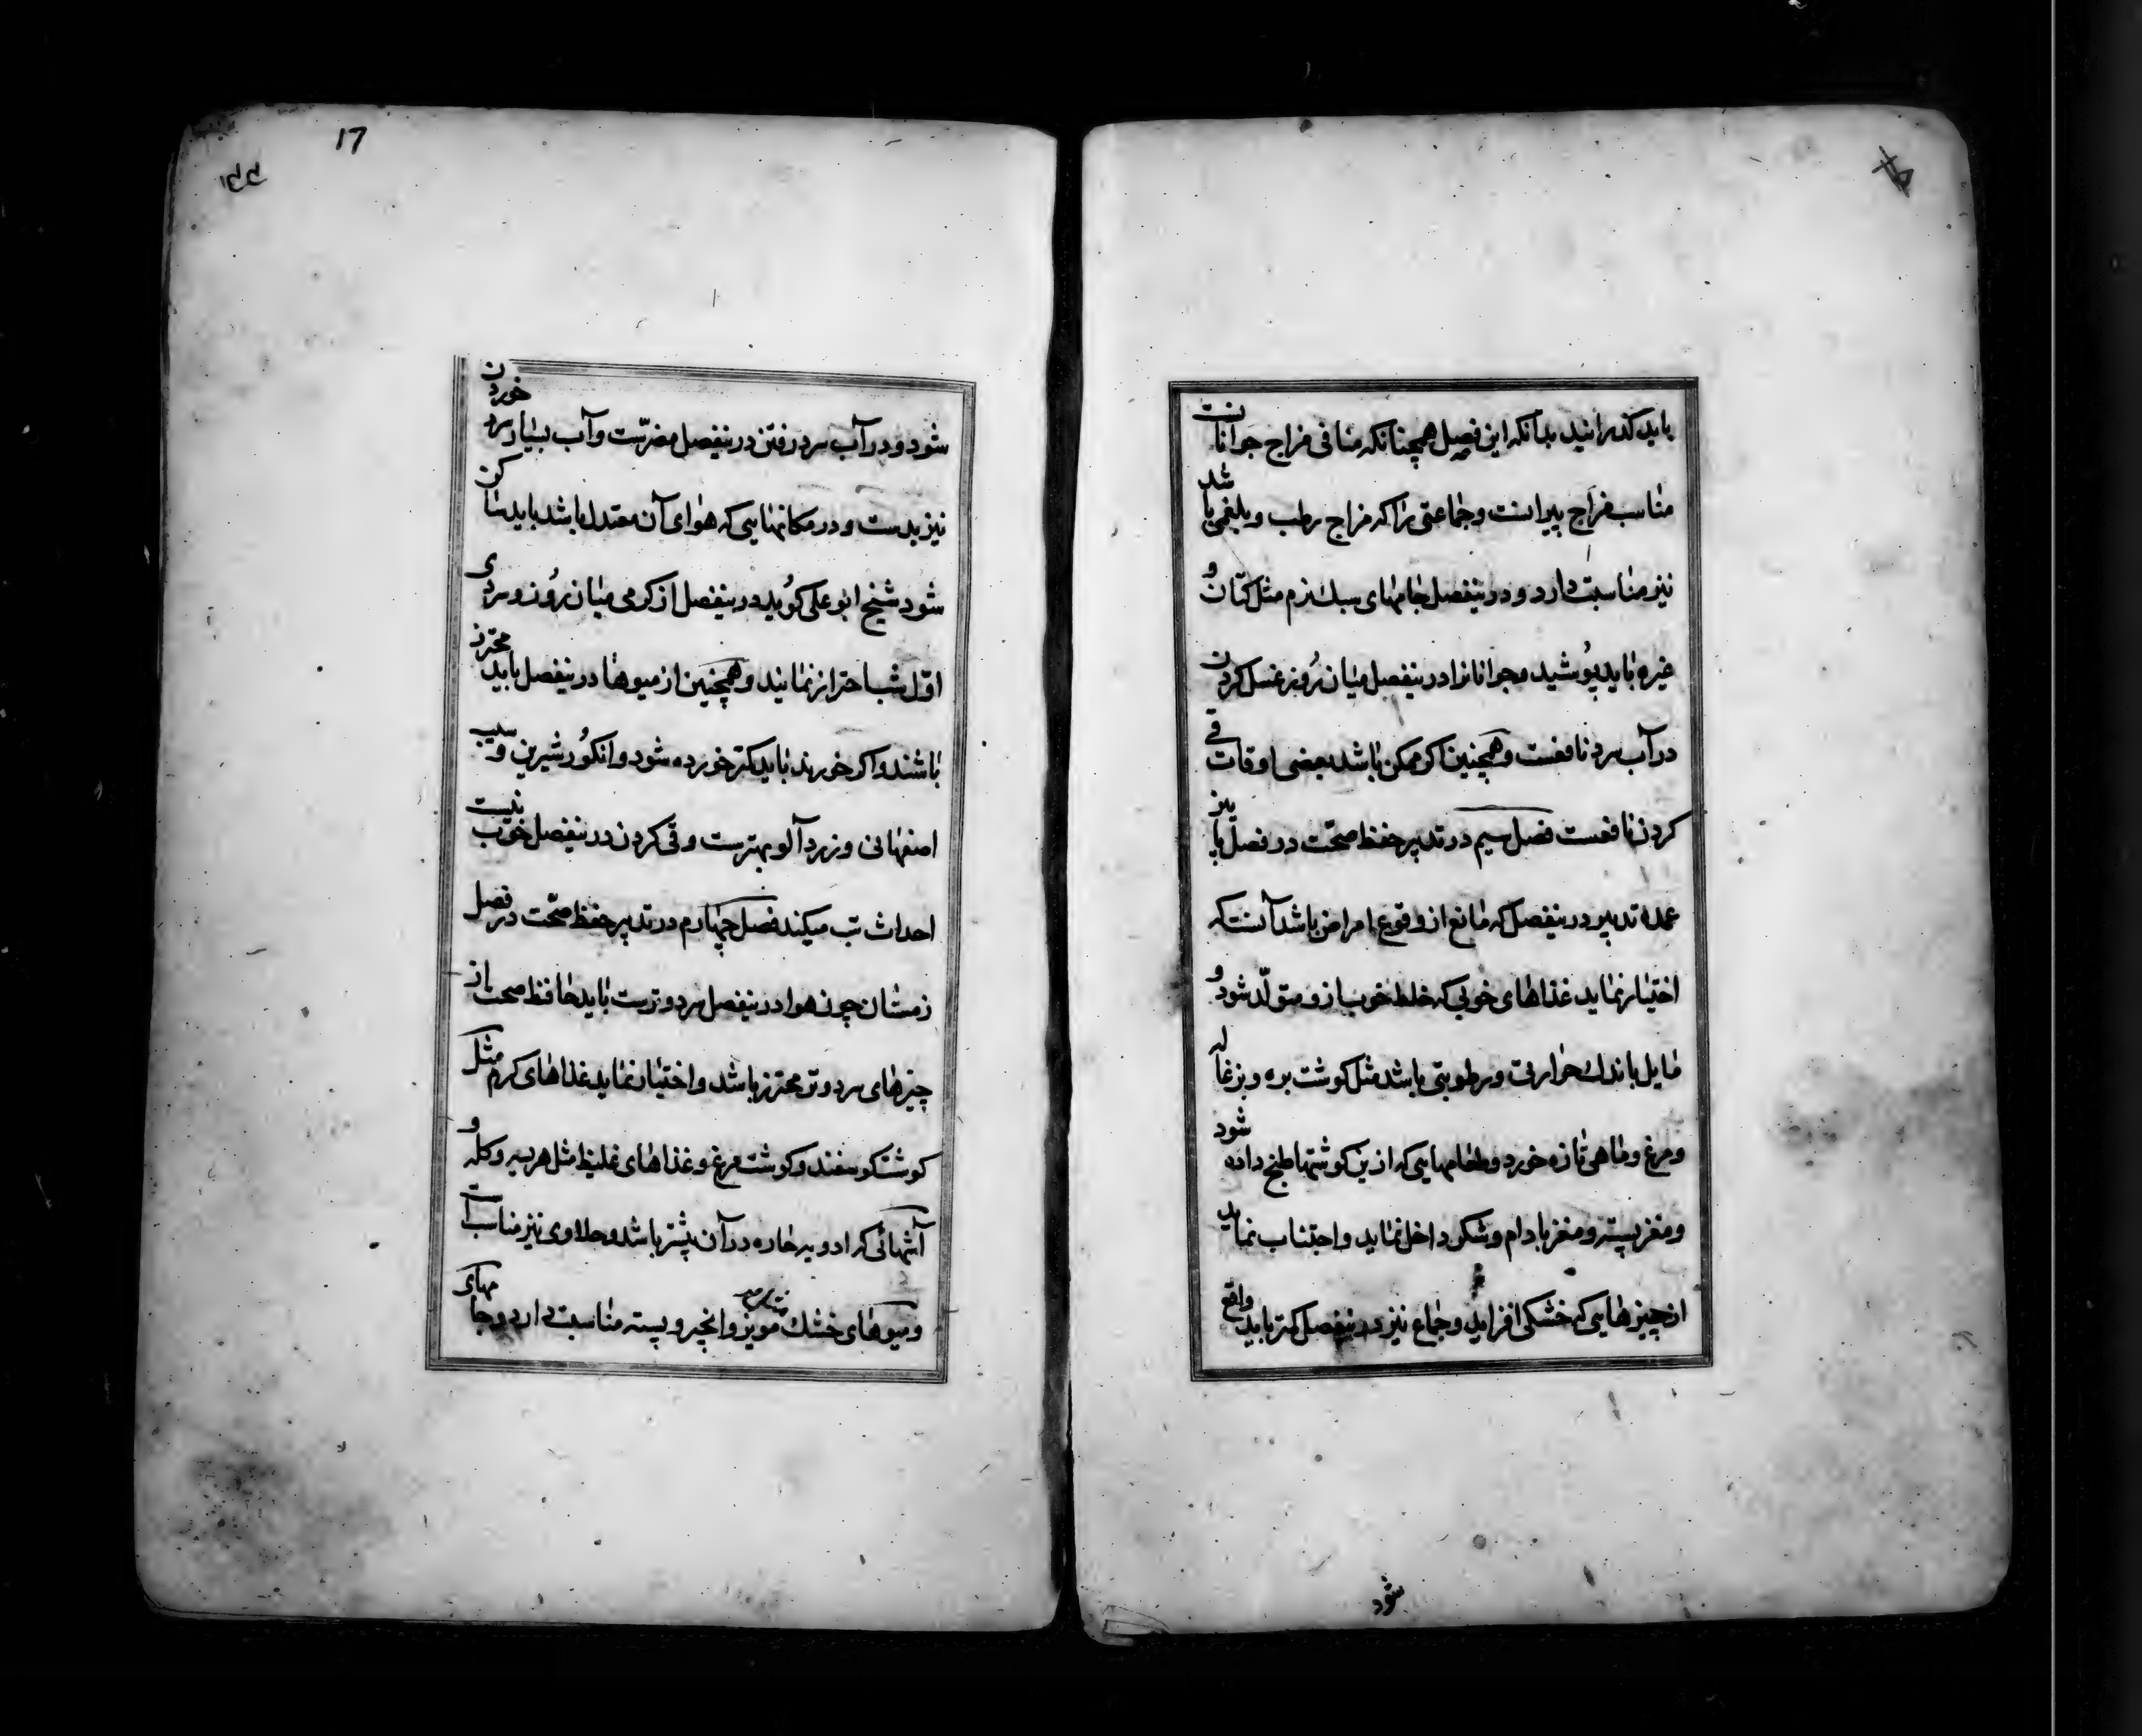 باید کذرانید بدآنکه این فصل همچنانکه منافی مزاج جوانانست
مناسب مزاج پیرانست و جماعتی را که مزاج رطب و بلغمی باشد
نیز مناسبت دارد و درینفصل جامهای سبك نرم مثل کتان و
غیره باید پوشید و جوانانرا درینفصل میان روز غسل کردن
در آب سرد نافعست و همچنین اکر ممکن باشد بعضی اوقات قی
کردن نافعست فصل سیم در تدبیر حفظ صحّت در فصل پاییز
عمده تدبیر درینفصل که مانع از وقوع امراض باشد آنست که
اختیار نماید غذاهای خوبی که خلط خوب ازو متولّد شود و
مایل باندك حرارتی و رطوبتی باشد مثل کوشت بره و بزغاله
و مرغ و ماهی تازه خورد و طعامهایی که ازین کوشتها طبخ داده شود
و مغز پسته و مغز بادام و شکر داخل نماید و اجتناب نماید
از چیزهایی که خشکی افزاید و جماع نیز درینفصل کمتر باید واقع
شود
17
۱۴۴
شود و در آب سرد رفتن درینفصل مضرّست و آب بسیار سرد خوردن
نیز بدست و در مکانهایی که هوای آن معتدل باشد باید ساکن
شود شیخ ابو علی کوید درینفصل از کرمی میان روز و سردی
اوّل شب احتراز نمایند و همچنین از میوها درینفصل باید محترز
باشند و اکر خورند باید کمتر خورده شود و انکور شیرین و سیب
اصفهانی و زردآلو بهترست و قی کردن درینفصل خوب نیست
احداث تب میکند فصل چهارم در تدبیر حفظ صحّت در فصل
زمستان چون هوا درینفصل سرد و ترست باید حافظ صحت از
چیزهای سرد و تر محترز باشد و اختیار نماید غذاهای کرم مثل
کوشت کوسفند و کوشت مرغ و غذاهای غلیظ مثل هریسه و کله و
آشهائی که ادویه حاره در آن بیشتر باشد و حلاوی نیز مناسب است
و میوهای خشك مویز و انجیر و پسته مناسبت دارد و جامهای